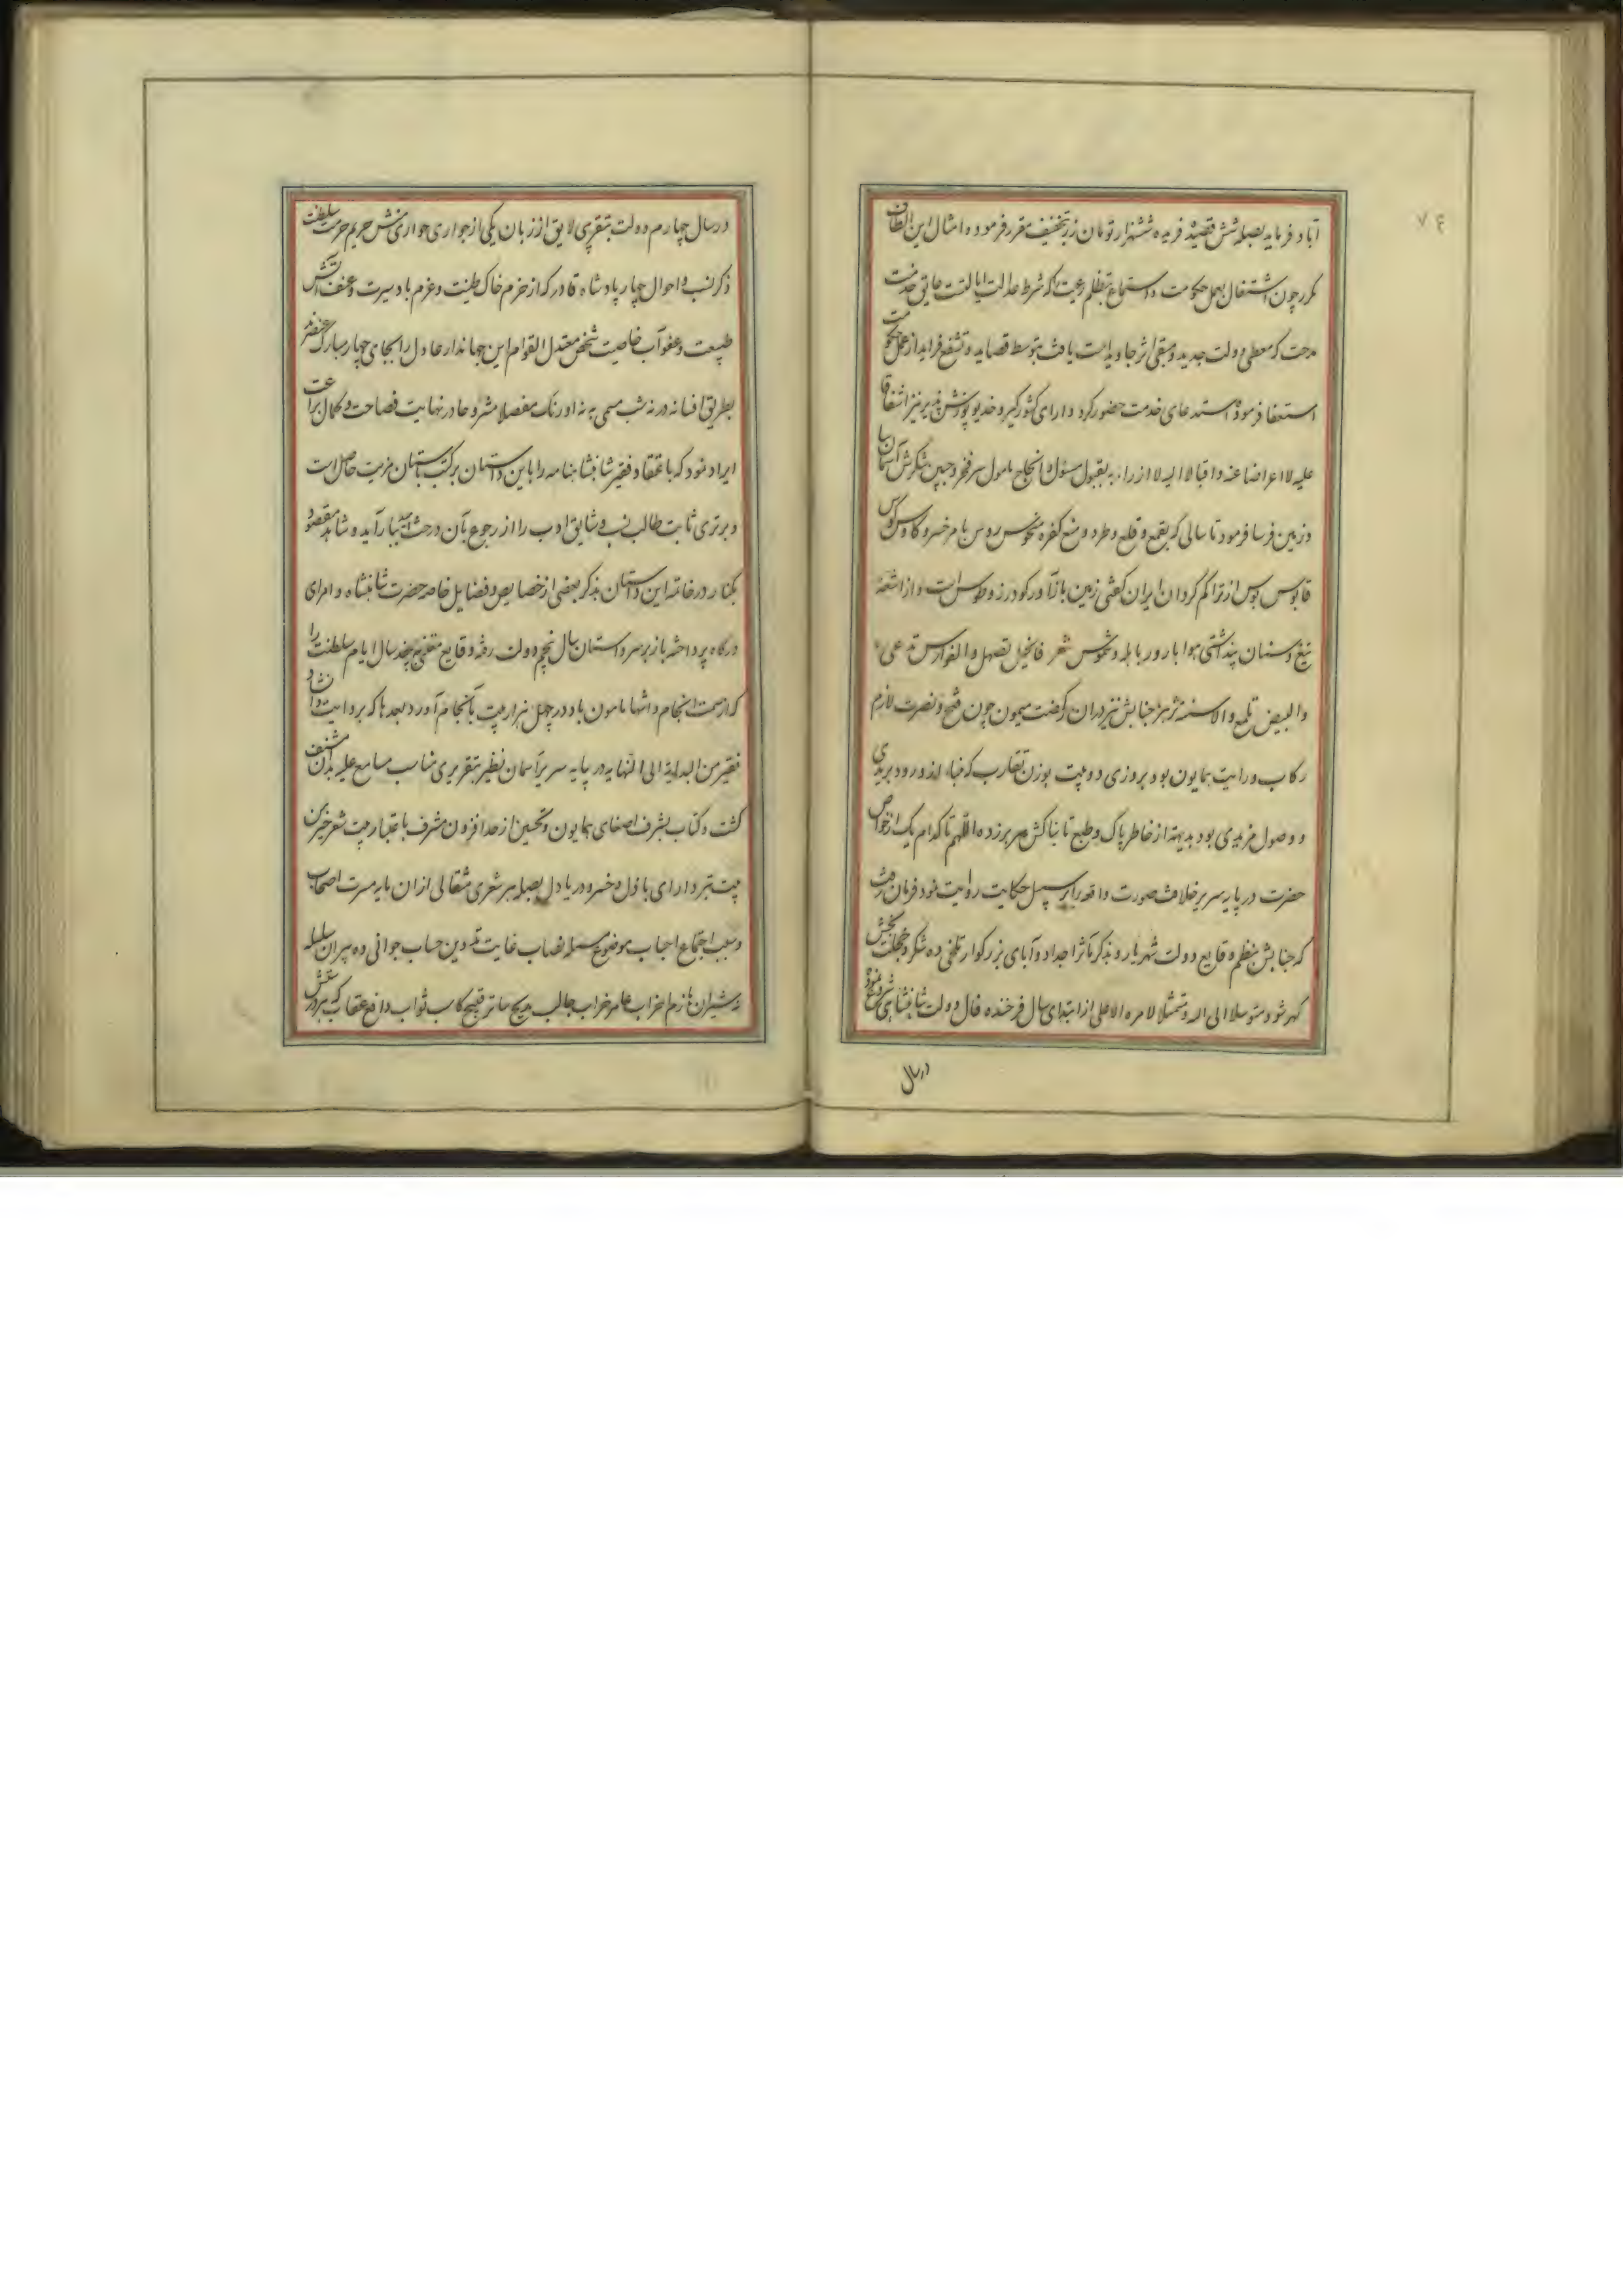 ۷۴
آباد فرماید بصله شش قصیدهٔ فریده ششهزار تومان زر بتخفیف مقرر فرموده و امثال این الطاف
مکرر چون اشتغال بعمل حکومت و استماع تظلم رعیت که شرط عدالت ایالتست عایق خدمت
مدحت که معطی دولت جدید و مبقی اثر جاوید است یافت بتوسط قصاید و تشفع فراید از عمل حکومت
استعفا فرموده استدعای خدمت حضور کرد و دارای کشورگیر و خدیو پوزش پذیر نیز اشفاقا
علیه لا اعراضا عنه و اقبالا الیه لا ازراء به بقبول مسئول و انجاح مامول سر فخر و جبین شکرش آسمان سا
و زمین فرسا فرمود تا سالی که بقمع و قلع و طرد و منع کفره منحوس روس بامر خسرو کاوس کوس
قابوس بوس از تراکم گردان ایران گفتی زمین بازآور گودرز و طوس است و از اشعهٔ
تیغ و سنان پنداشتی هوا بارور باهله و شموس شعر فالخیل تصهل والفوارس تدعی
والبیض تلمع والاسنه تزهر جنابش نیز در آن رکضت میمون چون فتح و نصرت ملازم
رکاب و رایت همایون بود بروزی دو بیت بوزن تقارب که خباء انه ورود بریدی
و وصول مزیدی بود بدیهة از خاطر پاک و طبع تابناکش سر برزده اللهم تا کدام یک از خواص
حضرت در پایه سریر خلافت صورت واقعه را بر سبیل حکایت روایت نمود فرمان رفت
که جنابش بنظم وقایع دولت شهریار و بذکر مآثر اجداد و آبای بزرگوار تلخی ده شکر و خجلت بخش
گهر شود متوسلا الی الله و تمثلا لامره الاعلی از ابتدای سال فرخنده فال دولت شاهنشاهی شروع نمود
در سال
در سال چهارم دولت بتقریری لایق از زبان یکی از جواری حواری منش حریم حرمت سلطنت
ذکر نسب و احوال چهار پادشاه قادر که از حزم خاک طینت و عزم باد سیرت و عنف آتش
طبیعت و عفو آب خاصیت شخص معتدل القوام این جهاندار عادل را بجای چهار مبارک عنصرند
بطریق افسانه در نه شب مسمی به نه اورنگ مفصلا مشروحا در نهایت فصاحت و کمال براعت
ایراد نمود که باعتقاد فقیر شاهنشاهنامه را باین داستان بر کتب باستان مزیت حاصل است
و برتری ثابت طالب نسب و شایق ادب را از رجوع بآن درخت امید ببار آید و شاهد مقصود
بکنار در خاتمه این داستان بذکر بعضی از خصایص و فضایل خاصه حضرت شاهنشاه و امرای
درگاه پرداخته باز بر سر داستان سال پنجم دولت رفته و قایع متفرقه چند سال ایام سلطنت را
که از سمت انجام و انتها مامون باد در چهل هزار بیت بانجام آورد بعدها که بروایت و انشاد
فقیر من البدایة الی النهایه در پایه سریر آسمان نظیر بتقریری مناسب مسامع علیه بدان مشنف
گشت و کتاب بشرف اصغای همایون و تحسین از حد افزون مشرف باعتبار بیت شعر خیر من
بیت تبر دارای باذل و خسرو دریادل بصله هر شعری مثقالی از آن مایه مسرت اصحاب
و سبب اجتماع احباب موضوع مسئله نصاب غایت تدوین حساب جوانی ده پیران سلسله
نه شیران هازم احزاب عامر خراب جالب مدیح ساتر قبیح کاسب ثواب دافع عقاب که پرورش